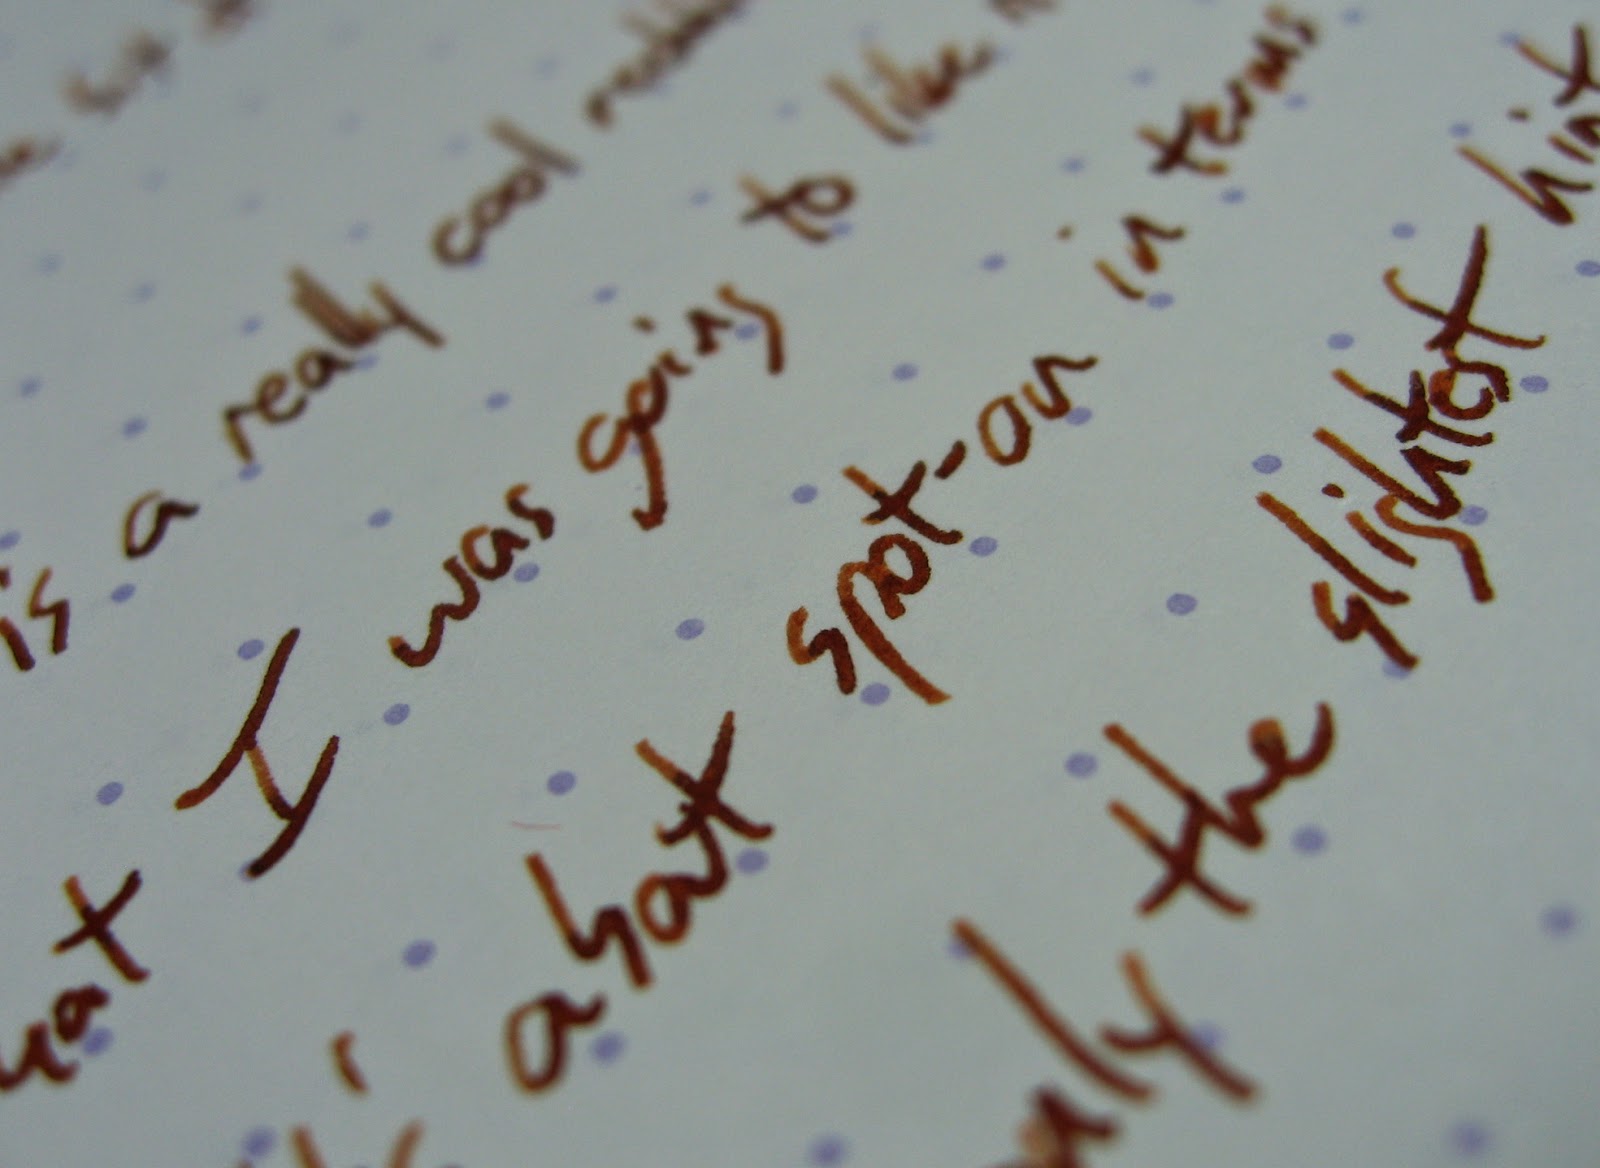 is a really cool
at I was going to like
about spot-on in terms
nly the slightest hint